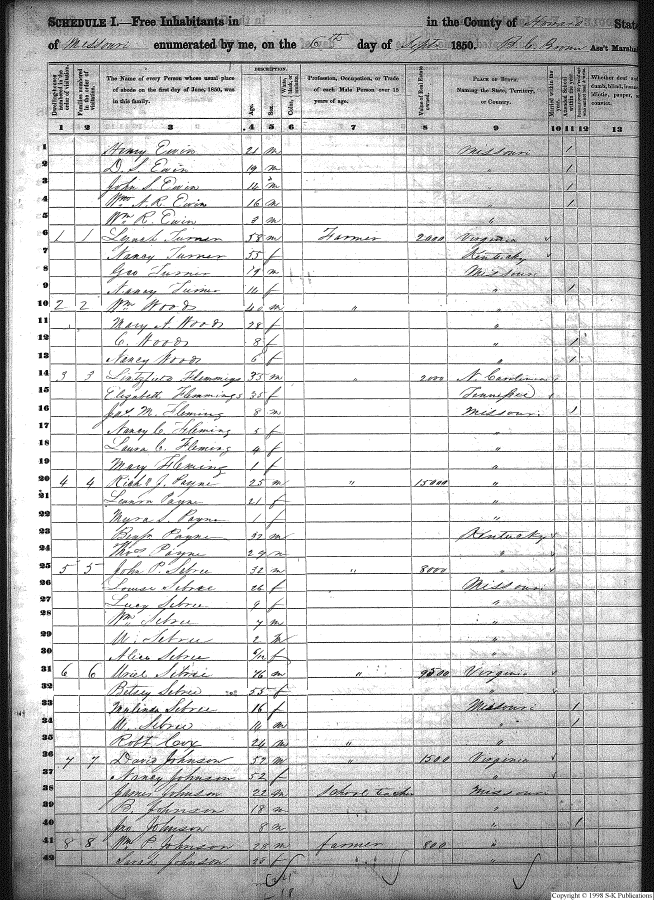 SCHEDULE I.—Free Inhabitants in in the County of Howard State
of Missouri enumerated by me, on the 6th day of Sept 1850. Ass't Marshal
DESCRIPTION.
Dwelling-houses numbered in the order of visitation.
Families numbered in the order of visitation.
The Name of every Person whose usual place of abode on the first day of June, 1850, was in this family.
Age.
Sex.
White, black, or mulatto.
Color,
Profession, Occupation, or Trade of each Male Person over 15 years of age.
Value of Real Estate owned.
PLACE OF BIRTH.
Naming the State, Territory, or Country.
Married within the year.
Attended School within the year.
Whether deaf and dumb, blind, insane, idiotic, pauper, or convict.
1 2 3 4 5 6 7 8 9 10 11 12 13
1 Henry Ewin 21 m Missouri 1
2 D. S. Ewin 19 m " 1
3 John S. Ewin 14 m " 1
4 Wm. A. R. Ewin 16 m " 1
5 Wm R. Ewin 3 m "
6 1 1 Turner 58 m Farmer 2000 Virginia
7 Nancy Turner 55 f Kentucky
8 Geo Turner 19 m Missouri
9 Nancy Turner 14 f " 1
10 2 2 Wm Woods 40 m " "
11 Mary A. Woods 28 f "
12 C. Woods 8 f " 1
13 Nancy Woods 6 f " 1
14 3 3 Flemmings 35 m " 2000 N. Carolina
15 Elizabeth Flemmings 35 f Tennessee
16 Jas. M. Fleming 8 m Missouri 1
17 Nancy C. Fleming 5 f "
18 Laura C. Fleming 4 f "
19 Mary Fleming 1 f "
20 4 4 Richd J. Payne 25 m " 15000 "
21 Payne 21 f "
22 Myra S. Payne 1 f "
23 Benjn Payne 32 m Kentucky
24 Thos Payne 27 m "
25 5 5 John P. Sebree 32 m " 8000 "
26 Louisa Sebree 26 f Missouri
27 Lucy Sebree 9 f "
28 Wm Sebree 7 m "
29 U. Sebree 2 m "
30 Alice Sebree f "
31 6 6 Uriel Sebree 76 m " 9500 Virginia
32 Betsey Sebree 55 f "
33 Sebree 16 f Missouri 1
34 U. Sebree 14 m " 1
35 Robt Cox 24 m " "
36 7 7 David Johnson 52 m " 1500 Virginia
37 Nancy Johnson 52 f "
38 James Johnson 22 m School teacher Missouri
39 B. Johnson 18 m "
40 Jno Johnson 8 m " 1
41 8 8 Wm P. Johnson 28 m farmer 800 "
42 Sarah Johnson 20 f "
18
Copyright © 1998 S-K Publications